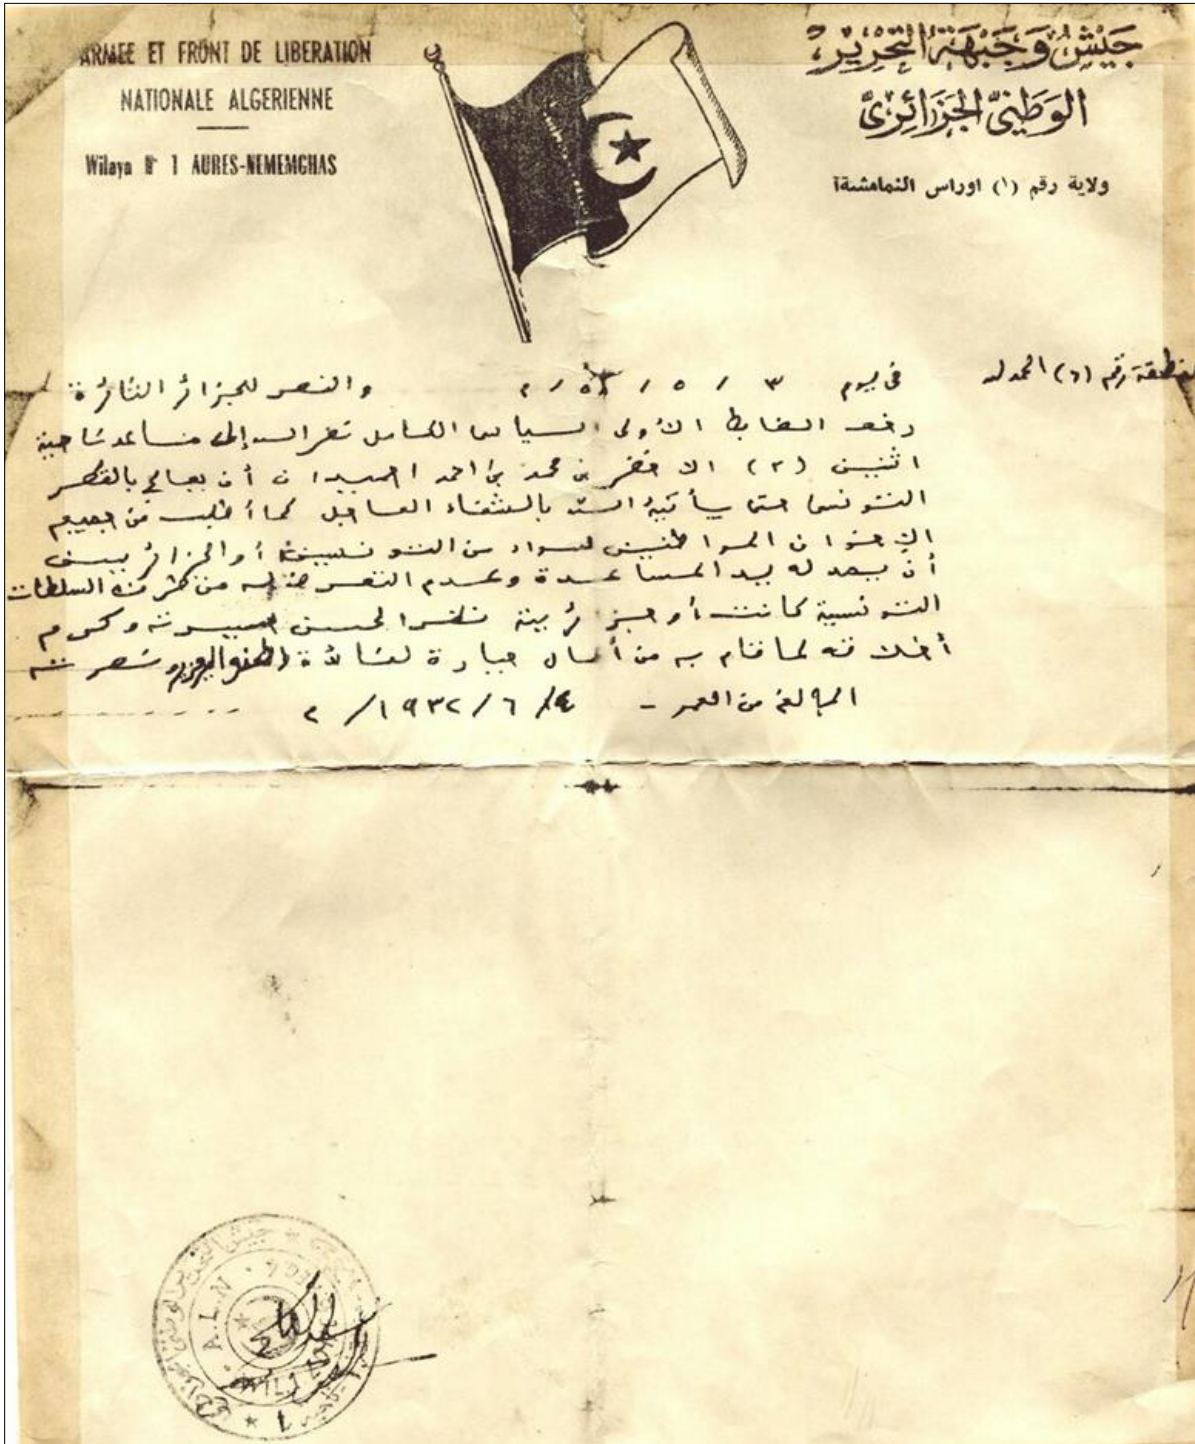 ARMEE ET FRONT DE LIBERATION
NATIONALE ALGERIENNE
Wilaya N° 1 AURES-NEMEMGHAS
جَيْشُ وَجَبْهَةُ التَّحْرِيْرِ
الوَطَنِيّ الجَزَائِرِيّ
ولاية رقم (١) اوراس النمامشة
المنطقة رقم (٦) الحمد لله
في يوم ٣ / ٥ / / والنصر للجزائر الثائرة
الضابط الأول السياسي إلى مساعد ناحية
اثنين (٢) الاخضر بن محمد بن احمد أن يعالج بالقطر
التونسي حتى يأتيه الله بالشفاء العاجل كما أطلب من جميع
الإخوان المواطنين سواء من التونسيين أو الجزائريين
أن يمد له يد المساعدة وعدم التعرض له من طرف السلطات
التونسية كانت أو جزائرية نظرا لحسن سيرته وكرم
أخلاقه لما قام به من أعمال جبارة لفائدة
البالغ من العمر - ٤ / ٦ / ١٩٣٢ /
A.L.N